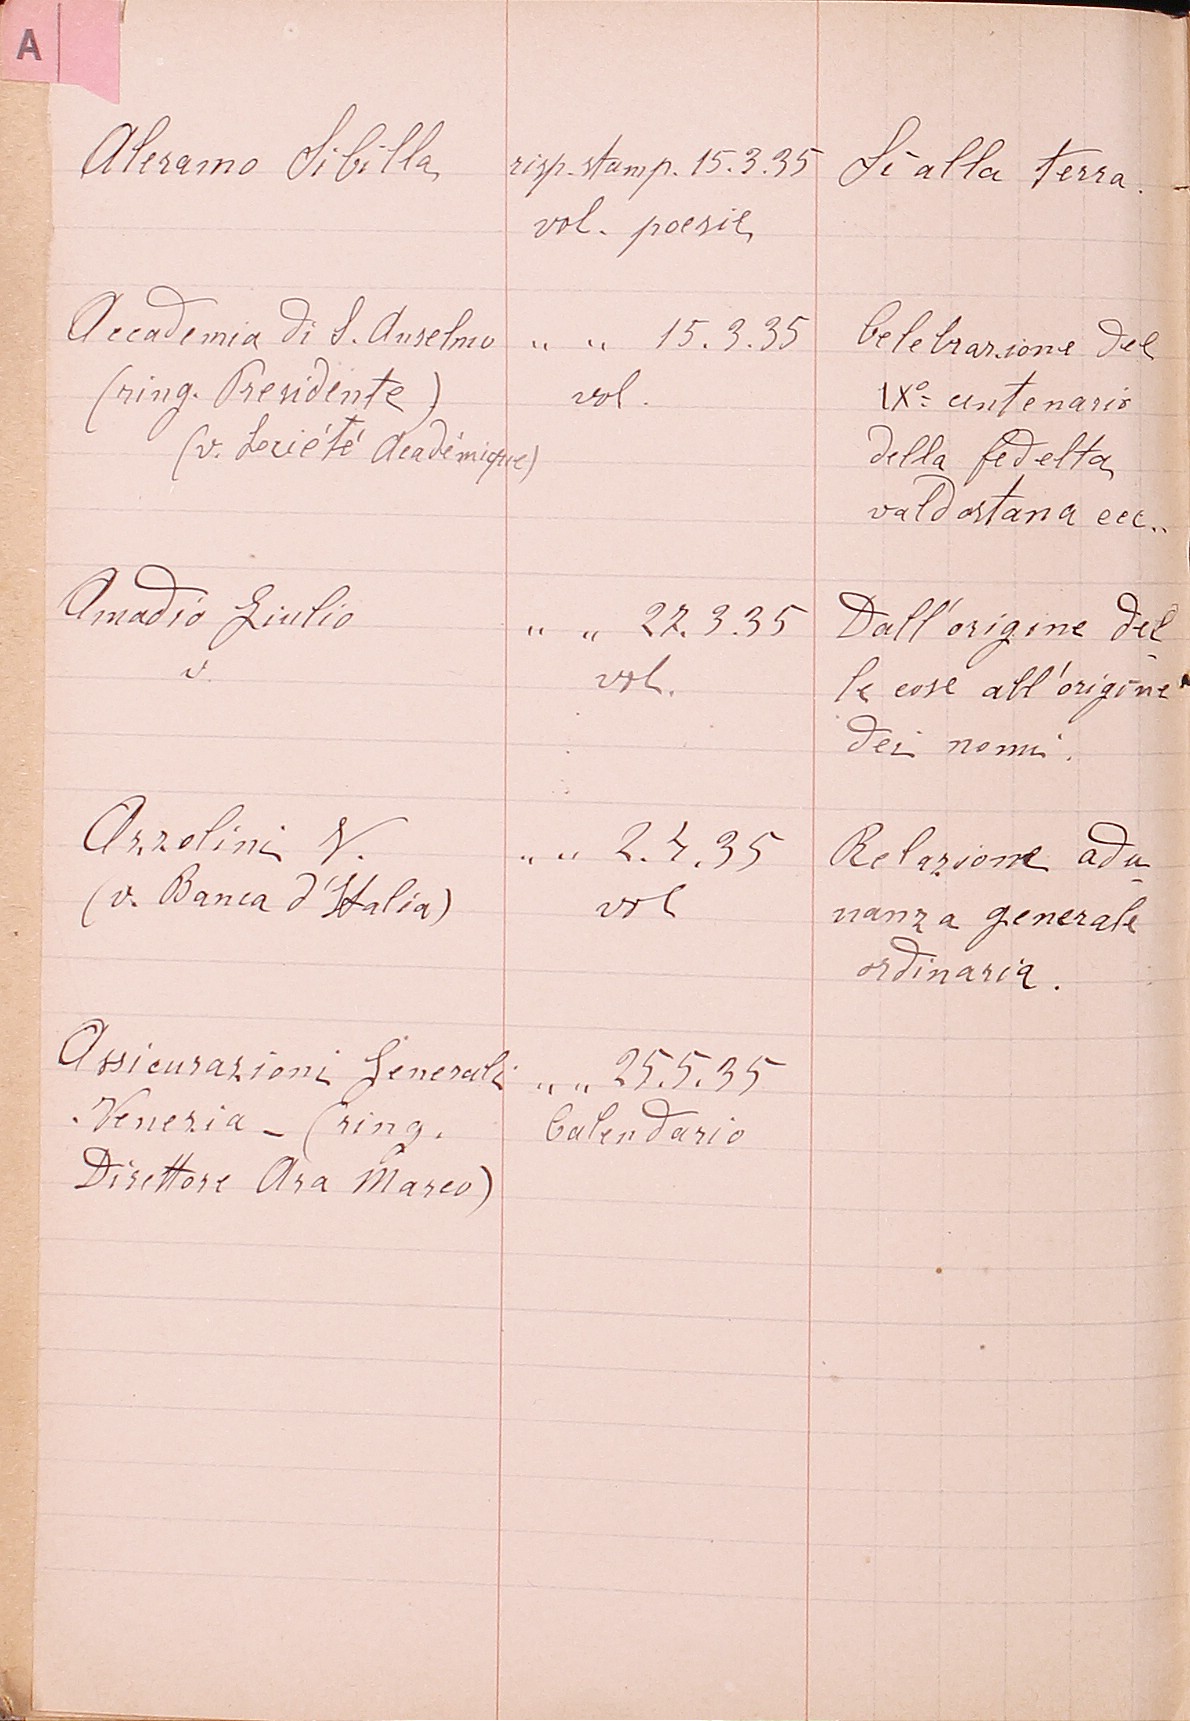 A
Aleramo Sibilla risp. stamp. 15.3.35 Sì alla terra.
vol. poesie
Accademia di S. Anselmo " " 15.3.35 Celebrazione del
(ring. Presidente) vol. IXº= centenario
(v. Société Académique) della fedeltà
valdostana ecc..
Amadio Giulio " " 22.3.35 Dall'origine del
v. vol. le cose all'origine
dei nomi.
Azzolini V. " " 2.4.35 Relazione adu
(v. Banca d'Italia) vol nanza generale
ordinaria.
Assicurazioni Generali " " 25.5.35
Venezia - (ring. Calendario
Direttore Ara Marco)